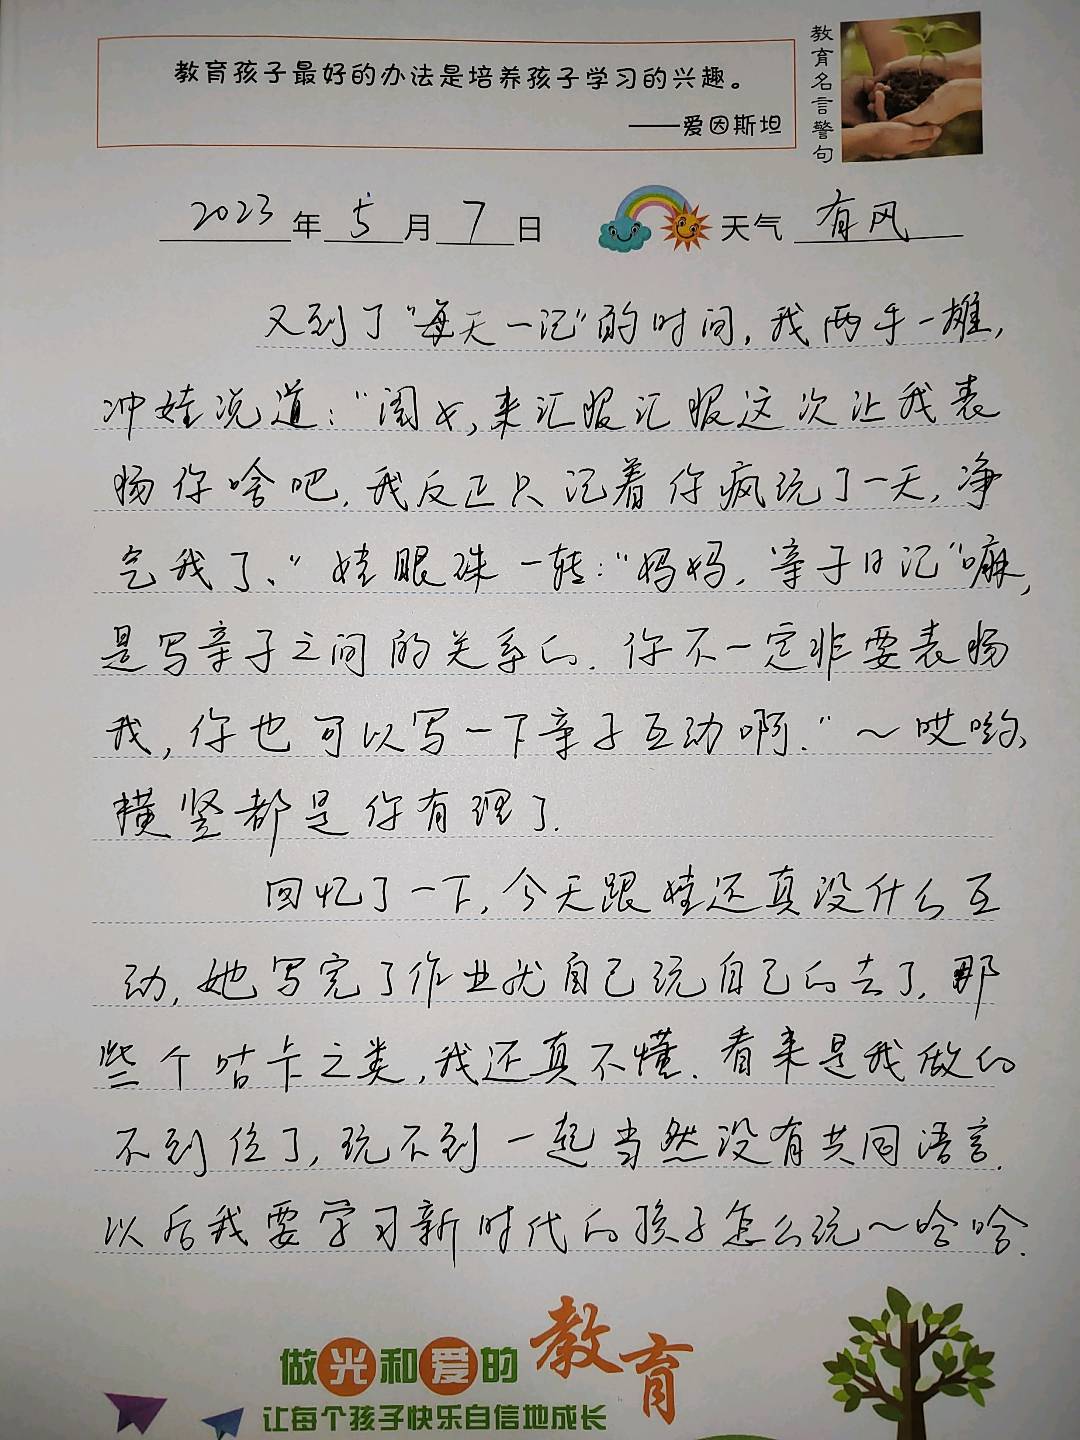 教育孩子最好的办法是培养孩子学习的兴趣。
——爱因斯坦
教育名言警句
2023年5月7日 天气 有风
又到了“每天一记”的时间,我两手一摊,
冲娃说道:“闺女,来汇报汇报这次让我表
扬你啥吧,我反正只记着你疯玩了一天,净
气我了、”娃眼珠一转:“妈妈,亲子日记“嘛,
是写亲子之间的关系的.你不一定非要表扬
我,你也可以写一下亲子互动啊.”~哎哟,
横竖都是你有理了.
回忆了一下,今天跟娃还真没什么互
动,她写完了作业就自己玩自己的去了.那
些个咕卡之类,我还真不懂.看来是我做的
不到位了,玩不到一起当然没有共同语言.
以后我要学习新时代的孩子怎么玩~哈哈.
做光和爱的教育
让每个孩子快乐自信地成长